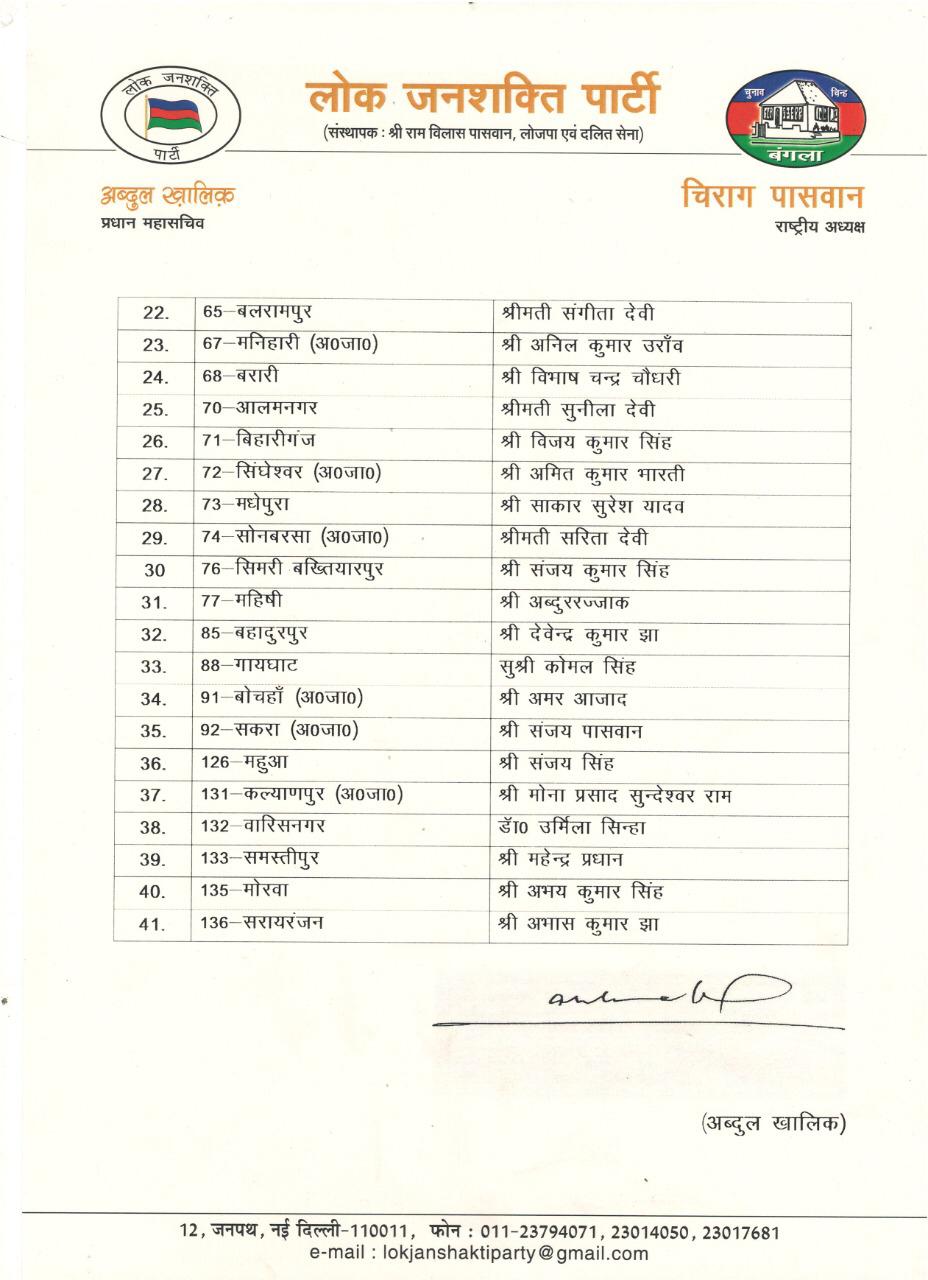 लोक जनशक्ति
पार्टी
लोक जनशक्ति पार्टी
(संस्थापक : श्री राम विलास पासवान, लोजपा एवं दलित सेना)
चुनाव चिन्ह
बंगला
अब्दुल ख़ालिक़
प्रधान महासचिव
चिराग पासवान
राष्ट्रीय अध्यक्ष
22. 65–बलरामपुर श्रीमती संगीता देवी
23. 67–मनिहारी (अ0जा0) श्री अनिल कुमार उराँव
24. 68–बरारी श्री विभाष चन्द्र चौधरी
25. 70–आलमनगर श्रीमती सुनीला देवी
26. 71–बिहारीगंज श्री विजय कुमार सिंह
27. 72–सिंघेश्वर (अ0जा0) श्री अमित कुमार भारती
28. 73–मधेपुरा श्री साकार सुरेश यादव
29. 74–सोनबरसा (अ0जा0) श्रीमती सरिता देवी
30 76–सिमरी बख्तियारपुर श्री संजय कुमार सिंह
31. 77–महिषी श्री अब्दुररज्जाक
32. 85–बहादुरपुर श्री देवेन्द्र कुमार झा
33. 88–गायघाट सुश्री कोमल सिंह
34. 91–बोचहाँ (अ0जा0) श्री अमर आजाद
35. 92–सकरा (अ0जा0) श्री संजय पासवान
36. 126–महुआ श्री संजय सिंह
37. 131–कल्याणपुर (अ0जा0) श्री मोना प्रसाद सुन्देश्वर राम
38. 132–वारिसनगर डॅा0 उर्मिला सिन्हा
39. 133–समस्तीपुर श्री महेन्द्र प्रधान
40. 135–मोरवा श्री अभय कुमार सिंह
41. 136–सरायरंजन श्री अभास कुमार झा
(अब्दुल खालिक)
12, जनपथ, नई दिल्ली-110011, फोन : 011-23794071, 23014050, 23017681
e-mail : lokjanshaktiparty@gmail.com